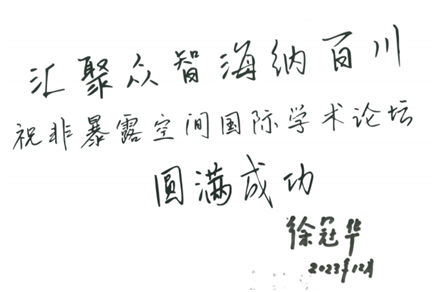 汇聚众智海纳百川
祝非暴露空间国际学术论坛
圆满成功
徐冠华
2023年12月